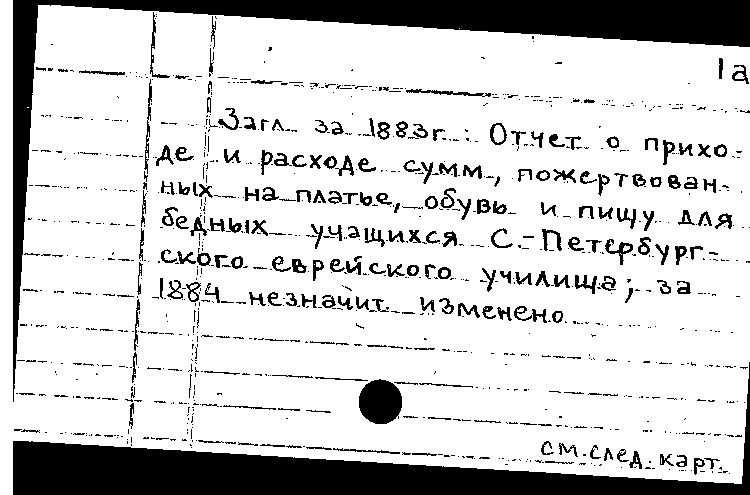 1а
Загл. за 1883г.: Отчет о прихо-
де и расходе сумм, пожертвован-
ных на платье, обувь и пищу для
бедных учащихся С.-Петербург-
ского еврейского училища; за
1884 незначит. изменено
см. след. карт.